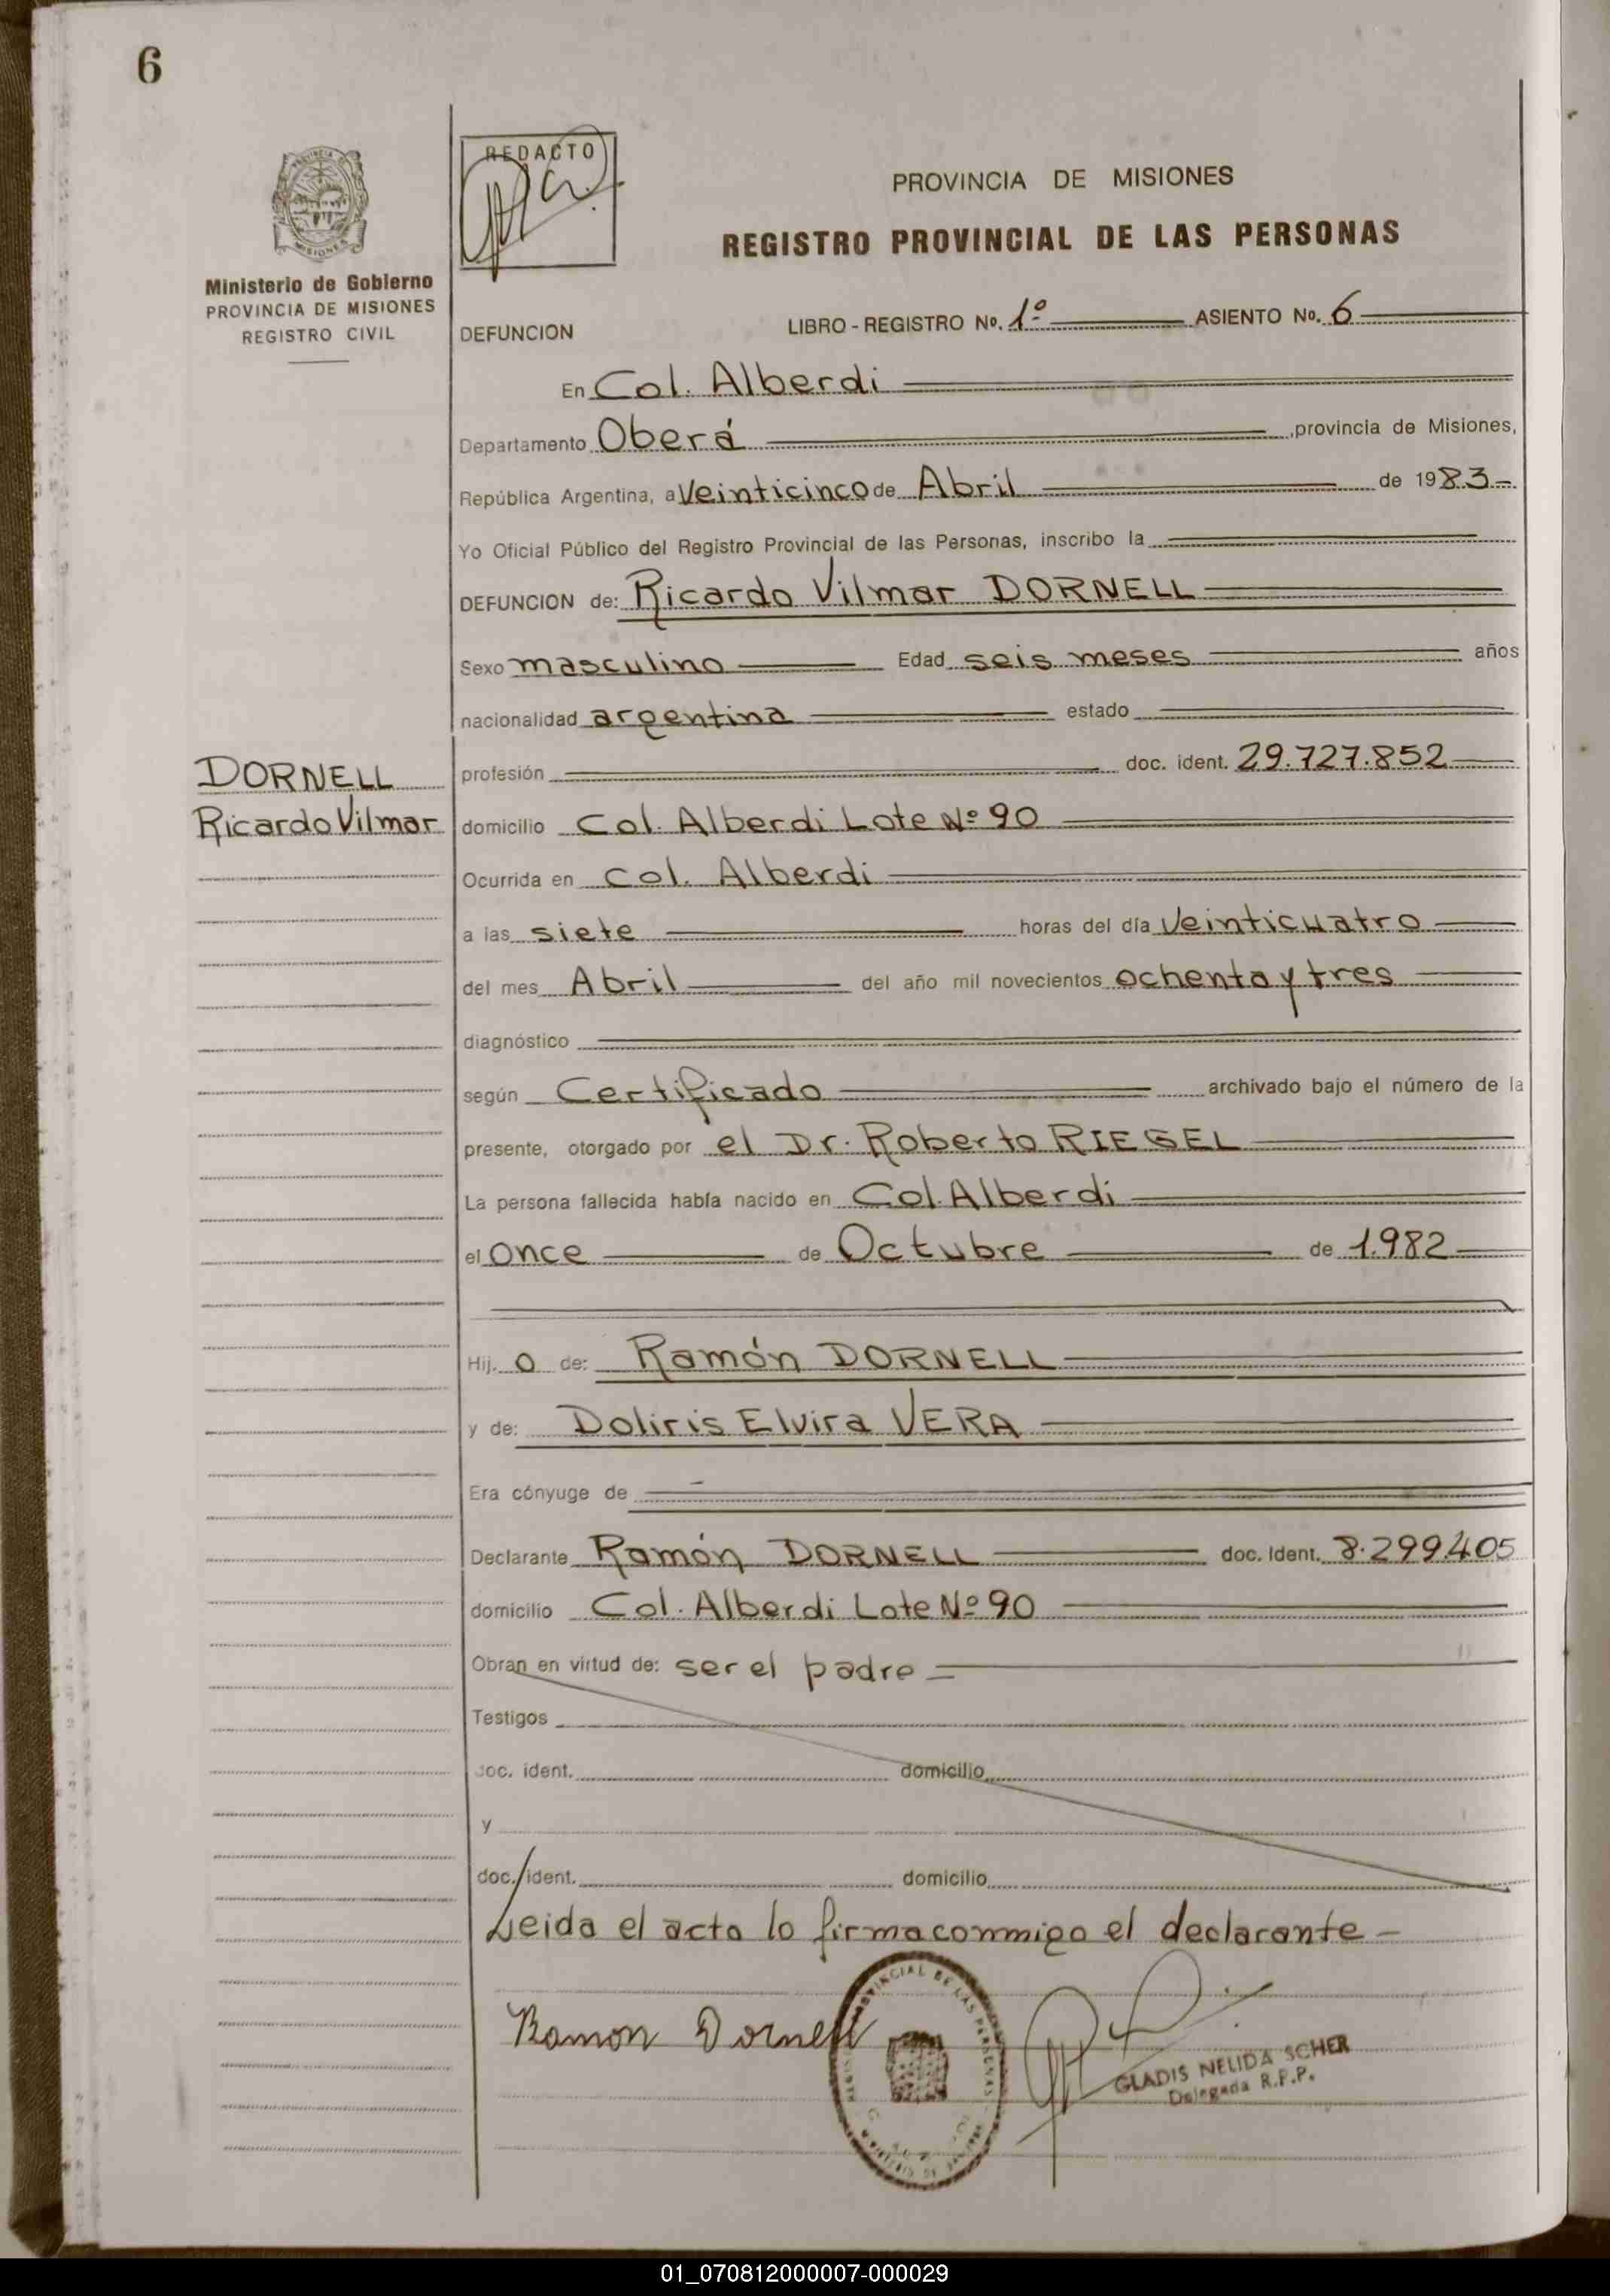 6
PROVINCIA DE
MISIONES
Ministerio de Gobierno
PROVINCIA DE MISIONES
REGISTRO CIVIL
REDACTO
PROVINCIA DE MISIONES
REGISTRO PROVINCIAL DE LAS PERSONAS
DEFUNCION LIBRO - REGISTRO No. 1º ASIENTO No. 6
En Col. Alberdi
Departamento Oberá ,provincia de Misiones,
República Argentina, a Veinticinco de Abril de 1983-
Yo Oficial Público del Registro Provincial de las Personas, inscribo la
DEFUNCION de: Ricardo Vilmar DORNELL
Sexo masculino Edad seis meses años
nacionalidad argentina estado
DORNELL
Ricardo Vilmar
profesión doc. ident. 29.727.852
domicilio Col. Alberdi Lote Nº 90
Ocurrida en Col. Alberdi
a las siete horas del día Veinticuatro
del mes Abril del año mil novecientos ochenta y tres
diagnóstico
según Certificado archivado bajo el número de la
presente, otorgado por el Dr. Roberto RIEGEL
La persona fallecida había nacido en Col. Alberdi
el Once de Octubre de 1.982
Hij. o de: Ramón DORNELL
y de: Doliris Elvira VERA
Era cónyuge de
Declarante Ramón DORNELL doc. Ident. 8.299.405
domicilio Col. Alberdi Lote Nº 90
Obran en virtud de: ser el padre -
Testigos
doc. ident. domicilio
y
doc. ident. domicilio
Leida el acta lo firma conmmigo el declarante -
Ramon Dornell
GLADIS NELIDA SCHER
Delegada R.P.P.
01_070812000007-000029